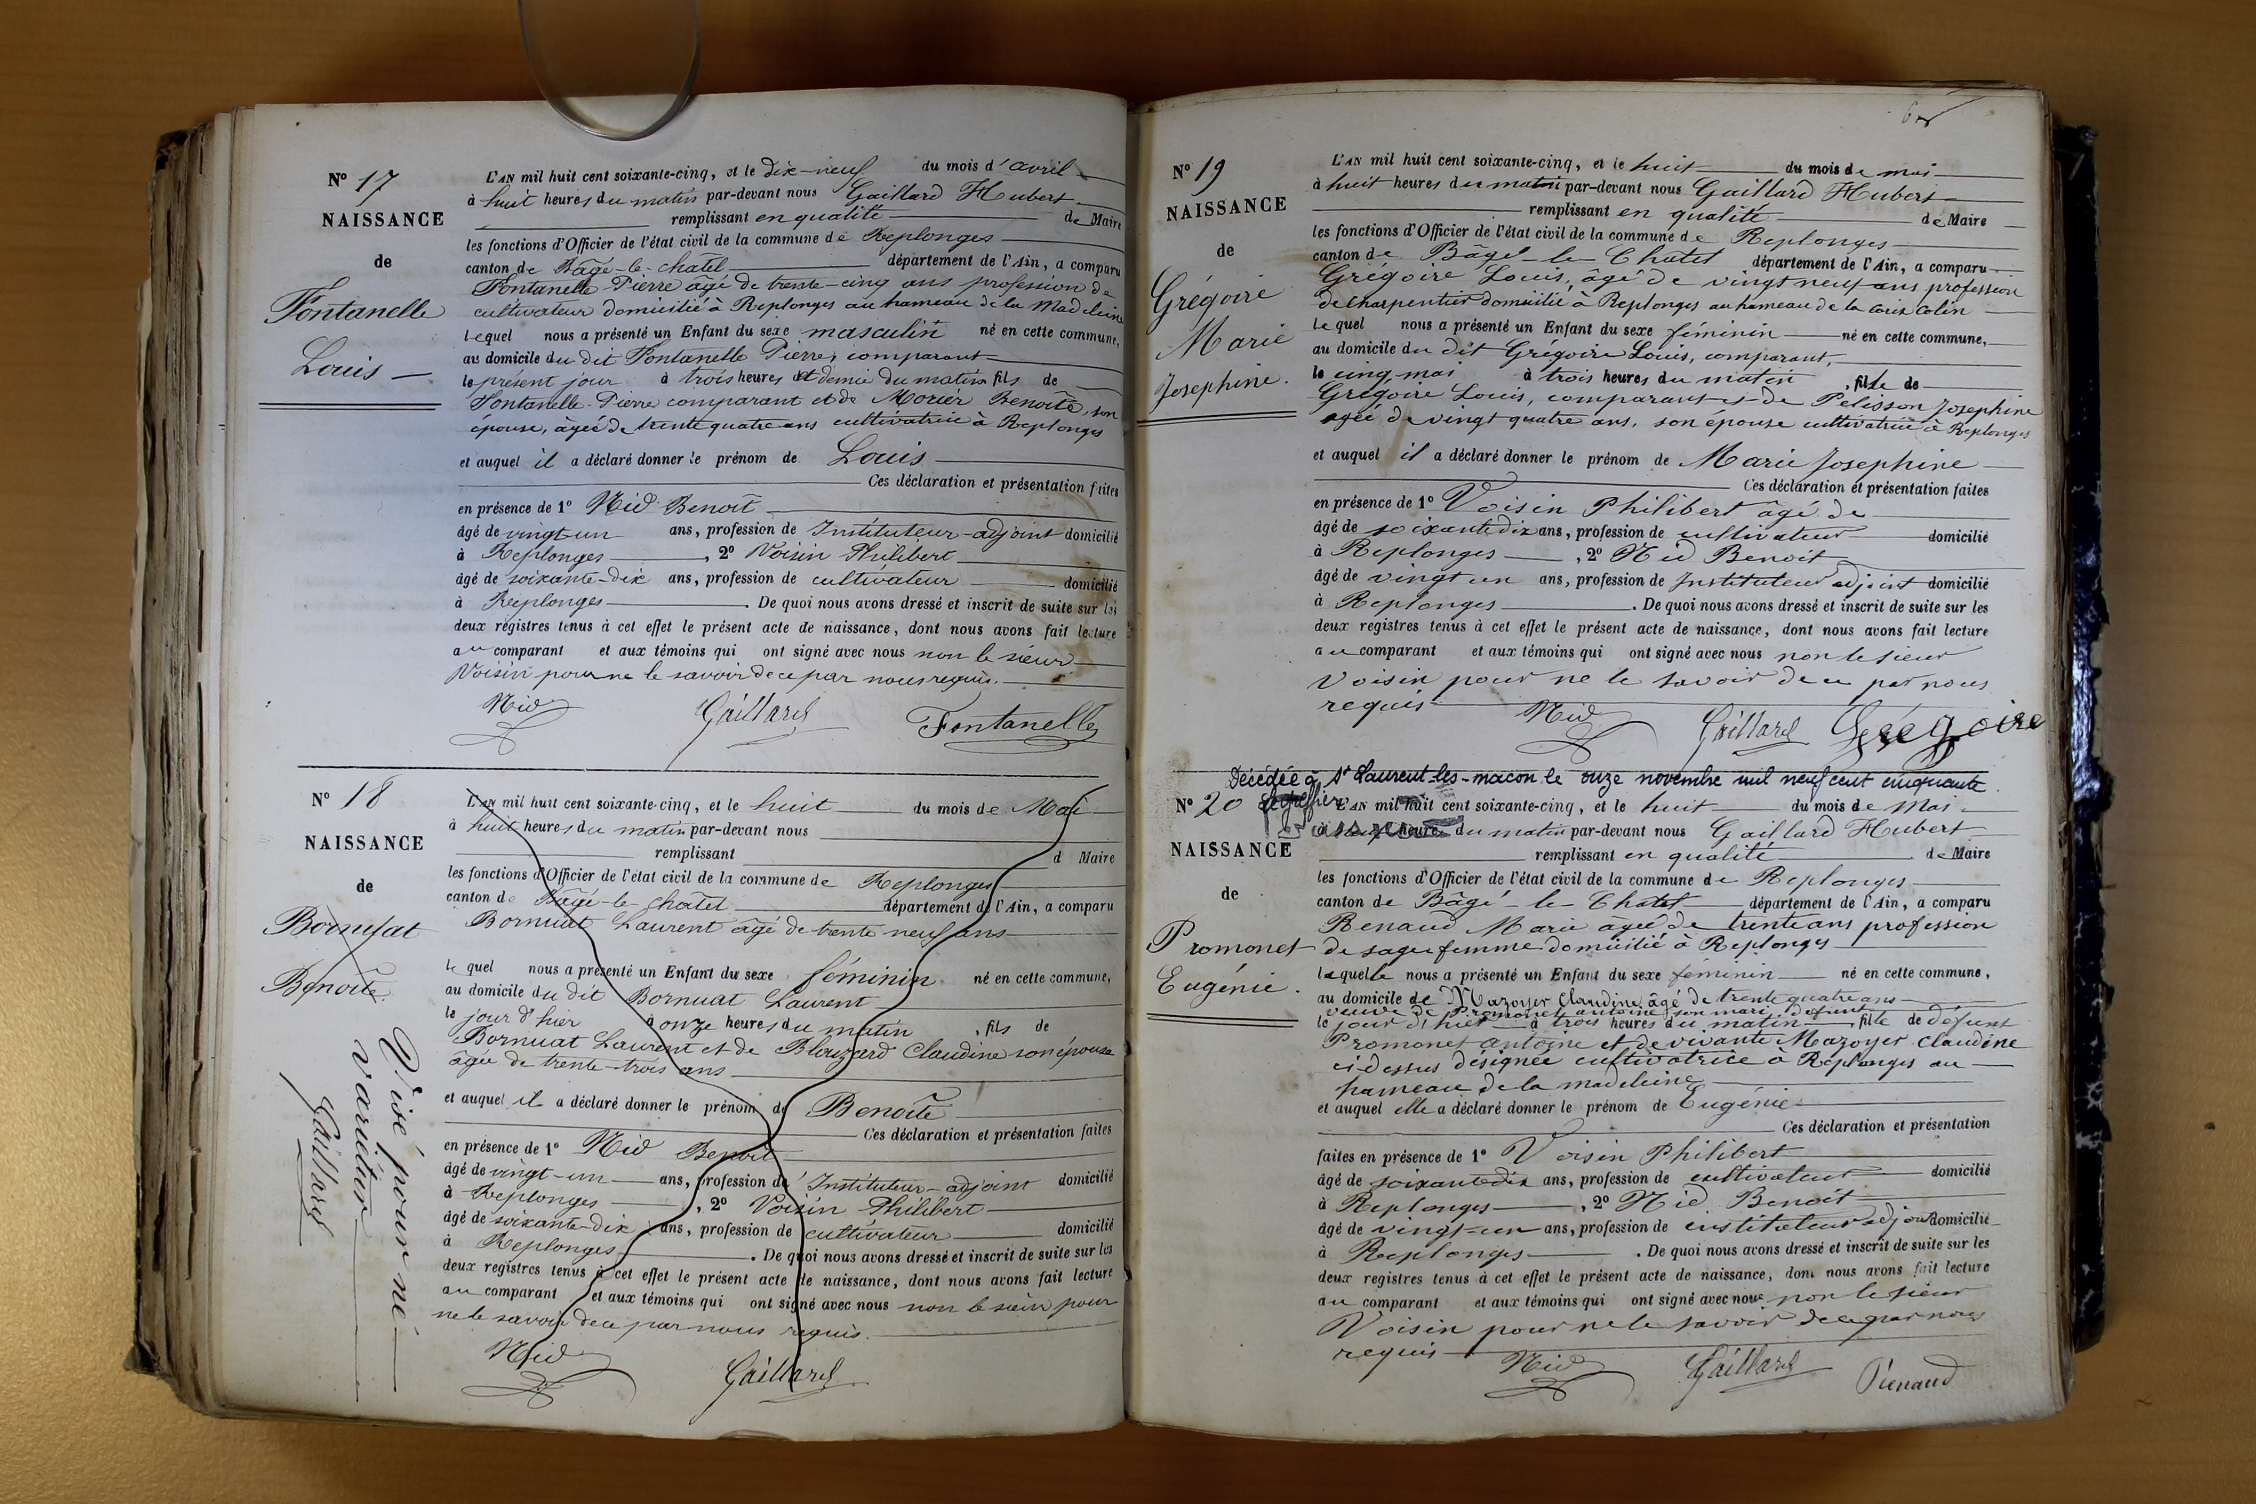 N° 17
NAISSANCE
de
Fontanelle
Louis
L'AN mil huit cent soixante-cinq, et le dix-neuf du mois d'avril
à huit heures du matin par-devant nous Gaillard Hubert
remplissant en qualité de Maire
les fonctions d'Officier de l'état civil de la commune de Replonges
canton de Bâgé-le-chatel département de l'Ain, a comparu
Fontanelle Pierre âgé de trente-cinq ans profession de
cultivateur domicilié à Replonges au hameau de la Madeleine
lequel nous a présenté un Enfant du sexe masculin né en cette commune,
au domicile du dit Fontanelle Pierre, comparant
le présent jour à trois heures et demie du matin fils de
Fontanelle Pierre comparant et de Morier Benoîte, son
épouse, âgée de trente quatre ans cultivatrice à Replonges
et auquel il a déclaré donner le prénom de Louis
Ces déclaration et présentation faites
en présence de 1° Nid Benoit
âgé de vingt-un ans, profession de Instituteur-adjoint domicilié
à Replonges, 2° Voisin Philibert
âgé de soixante-dix ans, profession de cultivateur domicilié
à Replonges. De quoi nous avons dressé et inscrit de suite sur les
deux registres tenus à cet effet le présent acte de naissance, dont nous avons fait lecture
au comparant et aux témoins qui ont signé avec nous non le sieur
Voisin pour ne le savoir de ce par nous requis.
Nid Gaillard Fontanelle
N° 18
NAISSANCE
de
Bornuat
Benoîte
Visé pour né
varietur
Gaillard
L'AN mil huit cent soixante-cinq, et le huit du mois de Mai
à huit heures du matin par-devant nous
remplissant d Maire
les fonctions d'Officier de l'état civil de la commune de Replonges
canton de Bâgé-le-chatel département de l'Ain, a comparu
Bornuat Laurent âgé de trente neuf ans
le quel nous a présenté un Enfant du sexe féminin né en cette commune,
au domicile du dit Bornuat Laurent
le jour d'hier à onze heures du matin, fils de
Bornuat Laurent et de Blouzard Claudine son épouse
âgée de trente-trois ans
et auquel il a déclaré donner le prénom de Benoîte
Ces déclaration et présentation faites
en présence de 1° Nid Benoit
âgé de vingt-un ans, profession de Instituteur-adjoint domicilié
à Replonges, 2° Voisin Philibert
âgé de soixante-dix ans, profession de cultivateur domicilié
à Replonges. De quoi nous avons dressé et inscrit de suite sur les
deux registres tenus à cet effet le présent acte de naissance, dont nous avons fait lecture
au comparant et aux témoins qui ont signé avec nous non le sieur pour
ne le savoir de ce par nous requis.
Nid Gaillard
N° 19
NAISSANCE
de
Grégoire
Marie
Josephine.
L'AN mil huit cent soixante-cinq, et le huit du mois de mai
à huit heures du matin par-devant nous Gaillard Hubert
remplissant en qualité de Maire
les fonctions d'Officier de l'état civil de la commune de Replonges
canton de Bâgé-le-Chatel département de l'Ain, a comparu
Grégoire Louis, âgé de vingt neuf ans profession
de charpentier domicilié à Replonges au hameau de la croix Colin
le quel nous a présenté un Enfant du sexe féminin né en cette commune,
au domicile du dit Grégoire Louis, comparant,
le cinq mai à trois heures du matin, fille de
Grégoire Louis, comparant et de Pelisson Josephine
agée de vingt quatre ans, son épouse cultivatrice à Replonges
et auquel il a déclaré donner le prénom de Marie Josephine
Ces déclaration et présentation faites
en présence de 1° Voisin Philibert âgé de
âgé de soixante dix ans, profession de cultivateur domicilié
à Replonges, 2° Nid Benoit
âgé de vingt un ans, profession de Instituteur adjoint domicilié
à Replonges. De quoi nous avons dressé et inscrit de suite sur les
deux registres tenus à cet effet le présent acte de naissance, dont nous avons fait lecture
au comparant et aux témoins qui ont signé avec nous non le sieur
Voisin pour ne le savoir de ce par nous
requis
Nid Gaillard Grégoire
Décédée à St Laurent-les-macon le onze novembre mil neuf cent cinquante.
Le greffier
N° 20
NAISSANCE
de
Promonet
Eugénie.
L'AN mil huit cent soixante-cinq, et le huit du mois de Mai
à heures du matin par-devant nous Gaillard Hubert
remplissant en qualité de Maire
les fonctions d'Officier de l'état civil de la commune de Replonges
canton de Bâgé-le-Chatel département de l'Ain, a comparu
Renaud Marie âgée de trente ans profession
de sage femme domicilié à Replonges
laquelle nous a présenté un Enfant du sexe féminin né en cette commune,
au domicile de Mazoyer Claudine âgé de trente quatre ans
veuve de Promonet antoine son mari défunt
le jour d'hier à trois heures du matin, fille de défunt
Promonet antoine et de vivante Mazoyer Claudine
ci-dessus désignée cultivatrice à Replonges au
hameau de la madeleine
et auquel elle a déclaré donner le prénom de Eugénie
Ces déclaration et présentation
faites en présence de 1° Voisin Philibert
âgé de soixante dix ans, profession de cultivateur domicilié
à Replonges, 2° Nid Benoit
âgé de vingt-un ans, profession de instituteur adjoint domicilié
à Replonges. De quoi nous avons dressé et inscrit de suite sur les
deux registres tenus à cet effet le présent acte de naissance, dont nous avons fait lecture
au comparant et aux témoins qui ont signé avec nous non le sieur
Voisin pour ne le savoir de ce par nous
requis
Nid Gaillard Renaud